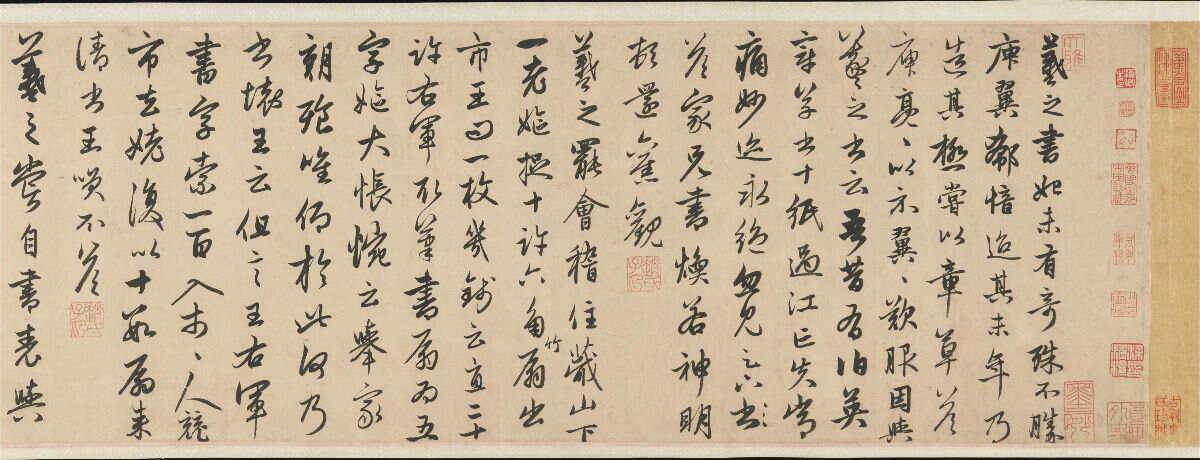 羲之書始未有奇殊不勝
庾翼郗愔迨其末年乃
造其極嘗以章草答
庾亮〻以示翼〻歎服因與
羲之書云吾昔有伯英
章草書十紙過江亡失常
痛妙迹永絕忽見足下書
答家兄書煥若神明
頓還舊觀
羲之罷會稽住蕺山下
一老嫗捉十許六角竹扇出
市王問一枚幾錢云直二十
許右軍取筆書扇為五
字嫗大悵惋云舉家
朝飡唯仰於此何乃
書壞王云但言王右軍
書字索一百入市〻人競
市去姥復以十數扇來
請書王笑不答
羲之嘗自書表與